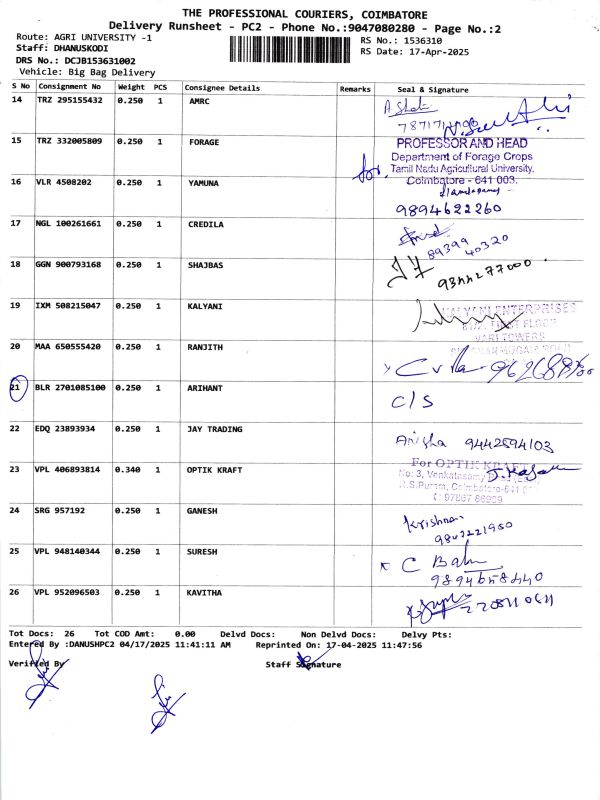 THE PROFESSIONAL COURIERS, COIMBATORE
Delivery Runsheet - PC2 - Phone No.:9047080280 - Page No.:2
Route: AGRI UNIVERSITY -1
RS No.: 1536310
Staff: DHANUSKODI
RS Date: 17-Apr-2025
DRS No.: DCJB153631002
Vehicle: Big Bag Delivery
S No Consignment No Weight PCS Consignee Details Remarks Seal & Signature
14 TRZ 295155432 0.250 1 AMRC
15 TRZ 332005809 0.250 1 FORAGE
PROFESSOR AND HEAD
Department of Forage Crops
for, Tamil Nadu Agricultural University,
Coimbatore - 641 003.
16 VLR 4508202 0.250 1 YAMUNA
9894622260
17 NGL 100261661 0.250 1 CREDILA
89399
40320
18 GGN 900793168 0.250 1 SHAJBAS
9344277000
19 IXM 508215047 0.250 1 KALYANI
KALYANI ENTERPRISES
FIRST FLOOR
TOWERS
20 MAA 650555420 0.250 1 RANJITH
21 BLR 2701085100 0.250 1 ARIHANT
C/S
22 EDQ 23893934 0.250 1 JAY TRADING
Anisha 9442594103
23 VPL 406893814 0.340 1 OPTIK KRAFT
For OPTIK KRAFT
No: 3, Venkatasamy
R.S.Puram, Coimbatore-641
24 SRG 957192 0.250 1 GANESH
Krishnan
25 VPL 948140344 0.250 1 SURESH
C Balu
9894658440
26 VPL 952096503 0.250 1 KAVITHA
Tot Docs: 26 Tot COD Amt: 0.00 Delvd Docs: Non Delvd Docs: Delvy Pts:
Entered By :DANUSHPC2 04/17/2025 11:41:11 AM Reprinted On: 17-04-2025 11:47:56
Verified By Staff Signature